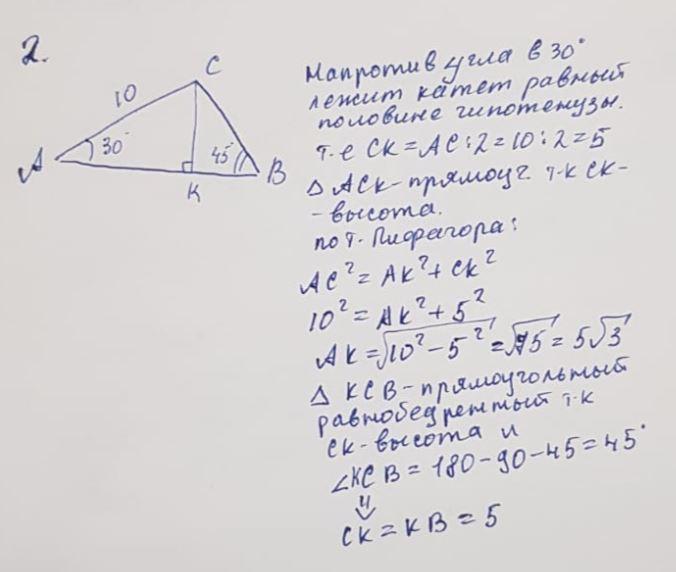 2.
C
10
30°
45°
A
K
B
Напротив угла в 30°
лежит катет равный
половине гипотенузы.
т.е CK = AC : 2 = 10 : 2 = 5
Δ ACK - прямоуг. т.к CK -
- высота.
по т. Пифагора:
AC² = AK² + CK²
10² = AK² + 5²
AK = √10² - 5² = √75 = 5√3
Δ KCB - прямоугольный
равнобедренный т.к
CK - высота и
∠KCB = 180 - 90 - 45 = 45°
⇓
CK = KB = 5